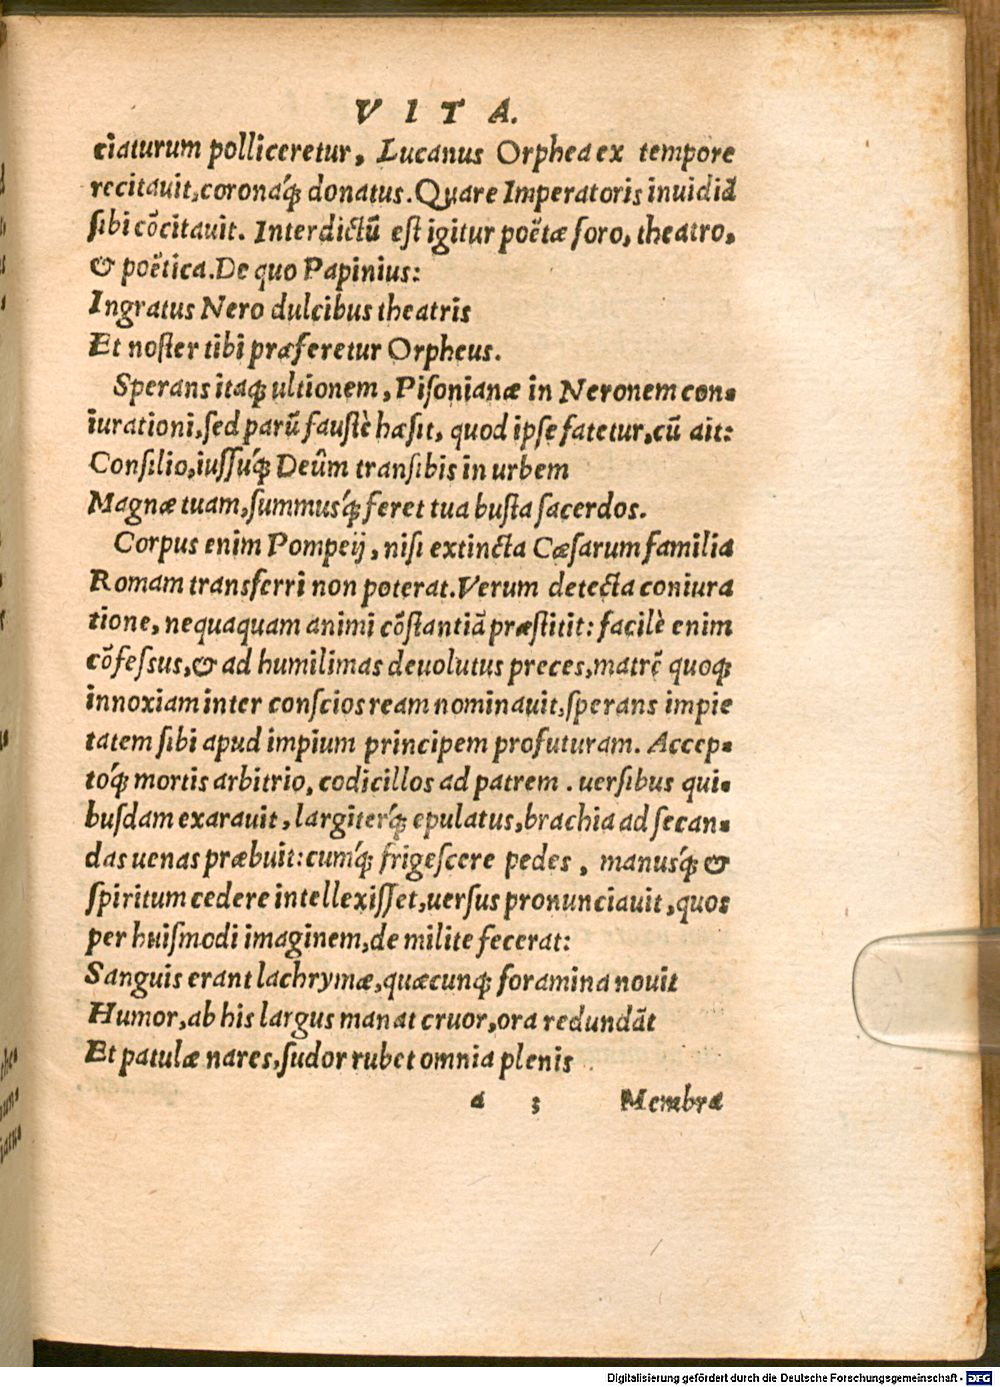 VITA.
ciaturum polliceretur, Lucanus Orphea ex tempore
recitauit, coronaq́; donatus. Quare Imperatoris inuidiã
ſibi cõcitauit. Interdictũ eſt igitur poëtæ foro, theatro,
& poëtica. De quo Papinius:
Ingratus Nero dulcibus theatris
Et noſter tibi præferetur Orpheus.
Sperans itaq; ultionem, Piſonianæ in Neronem con-
iurationi, ſed parũ fauſtè hæſit, quod ipſe fatetur, cũ ait:
Conſilio, iuſſuq́; Deûm tranſibis in urbem
Magnæ tuam, ſummusq́; feret tua buſta ſacerdos.
Corpus enim Pompeij, niſi extincta Cæſarum familia
Romam transferri non poterat. Verum detecta coniura
tione, nequaquam animi cõſtantiã præſtitit: facilè enim
cõfeſsus, & ad humilimas deuolutus preces, matrẽ quoq;
innoxiam inter conſcios ream nominauit, ſperans impie
tatem ſibi apud impium principem profuturam. Accep-
toq́; mortis arbitrio, codicillos ad patrem . uerſibus qui-
buſdam exarauit, largiterq́; epulatus, brachia ad ſecan-
das uenas præbuit: cumq́; frigeſcere pedes, manusq́; &
ſpiritum cedere intellexiſſet, uerſus pronunciauit, quos
per huiſmodi imaginem, de milite fecerat:
Sanguis erant lachrymæ, quæcunq; foramina nouit
Humor, ab his largus manat cruor, ora redundãt
Et patulæ nares, ſudor rubet omnia plenis
a 3 Membra
Digitalisierung gefördert durch die Deutsche Forschungsgemeinschaft - DFG